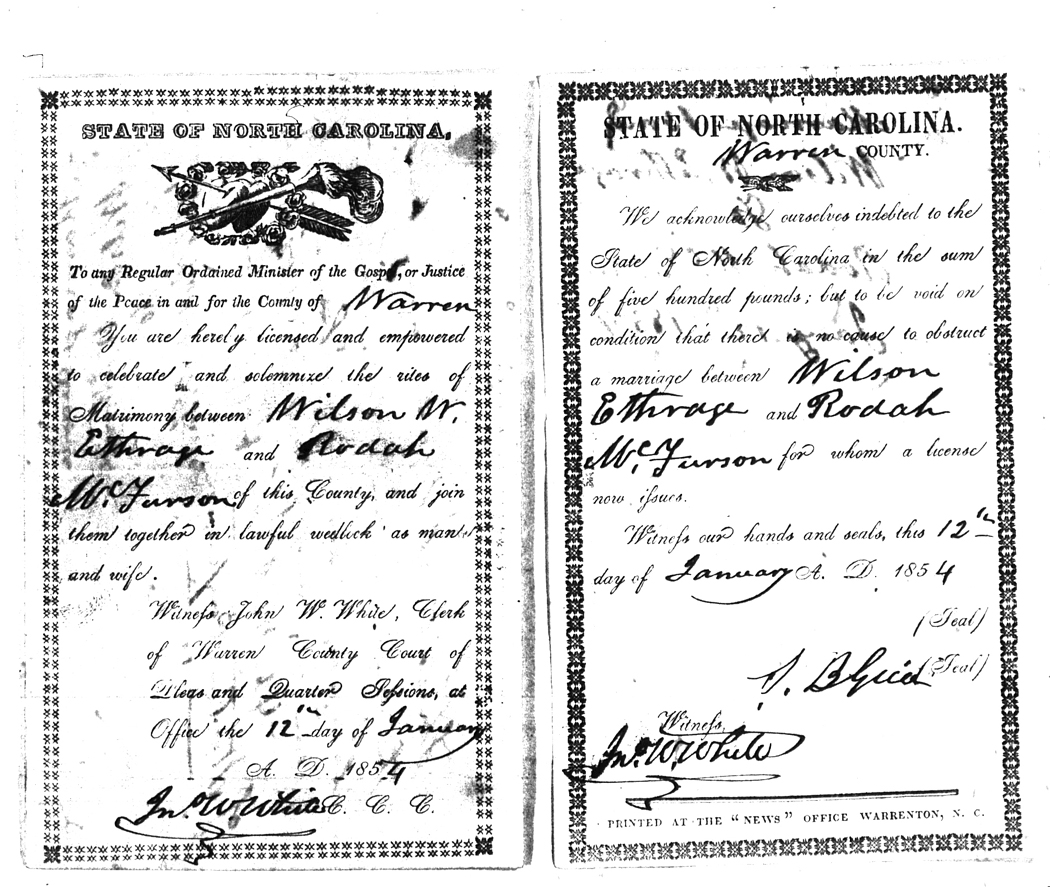 STATE OF NORTH CAROLINA,
To any Regular Ordained Minister of the Gospel, or Justice
of the Peace in and for the County of Warren
You are hereby licensed and empowered
to celebrate and solemnize the rites of
Matrimony between Wilson W.
Ethrage and Rodah
McFurson of this County, and join
them together in lawful wedlock as man
and wife.
Witness John W. White, Clerk
of Warren County Court of
Pleas and Quarter Sessions, at
Office the 12th day of January
A. D. 1854
Jno. W. White C. C. C.
STATE OF NORTH CAROLINA.
Warren COUNTY.
We acknowledge ourselves indebted to the
State of North Carolina in the sum
of five hundred pounds; but to be void on
condition that there is no cause to obstruct
a marriage between Wilson
Ethrage and Rodah
McFurson for whom a license
now issues.
Witness our hands and seals, this 12th
day of January A. D. 1854
(Seal)
(Seal)
Witness,
Jno. W. White
PRINTED AT THE "NEWS" OFFICE WARRENTON, N. C.